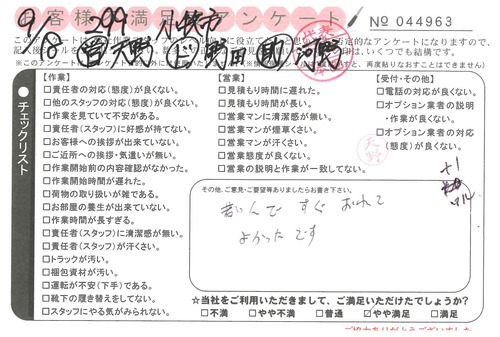 お客様満足度アンケート
№ 044963
9/8
【作業】
□責任者の対応(態度)が良くない。
□他のスタッフの対応(態度)が良くない。
□作業を見ていて不安がある。
□責任者(スタッフ)に好感が持てない。
□お客様への挨拶が出来ていない。
□ご近所への挨拶・気遣いが無い。
□作業開始前の内容確認がなかった。
□作業開始時間が遅れた。
□荷物の取り扱いが雑である。
□お部屋の養生が出来ていない。
□作業時間が長すぎる。
□責任者(スタッフ)に清潔感が無い。
□責任者(スタッフ)が汗くさい。
□トラックが汚い。
□梱包資材が汚い。
□運転が不安(下手)である。
□靴下の履き替えをしてない。
□スタッフにやる気がみられない。
チェックリスト
【営業】
□見積もり時間に遅れた。
□見積もり時間が長い。
□営業マンに清潔感が無い。
□営業マンが煙草くさい。
□営業マンが汗くさい。
□営業態度が良くない。
□営業の説明と作業が一致してない。
【受付・その他】
□電話の対応が良くない。
□オプション業者の説明
・作業が良くない。
□オプション業者の対応
(態度)が良くない。
その他、ご意見・ご要望等ありましたらお書き下さい。
若い人で すぐ おわって
よかった です
☆当社をご利用いただきまして、ご満足いただけたでしょうか?
□不満 □やや不満 □普通 ☑やや満足 □満足
ご協力ありがとうございました